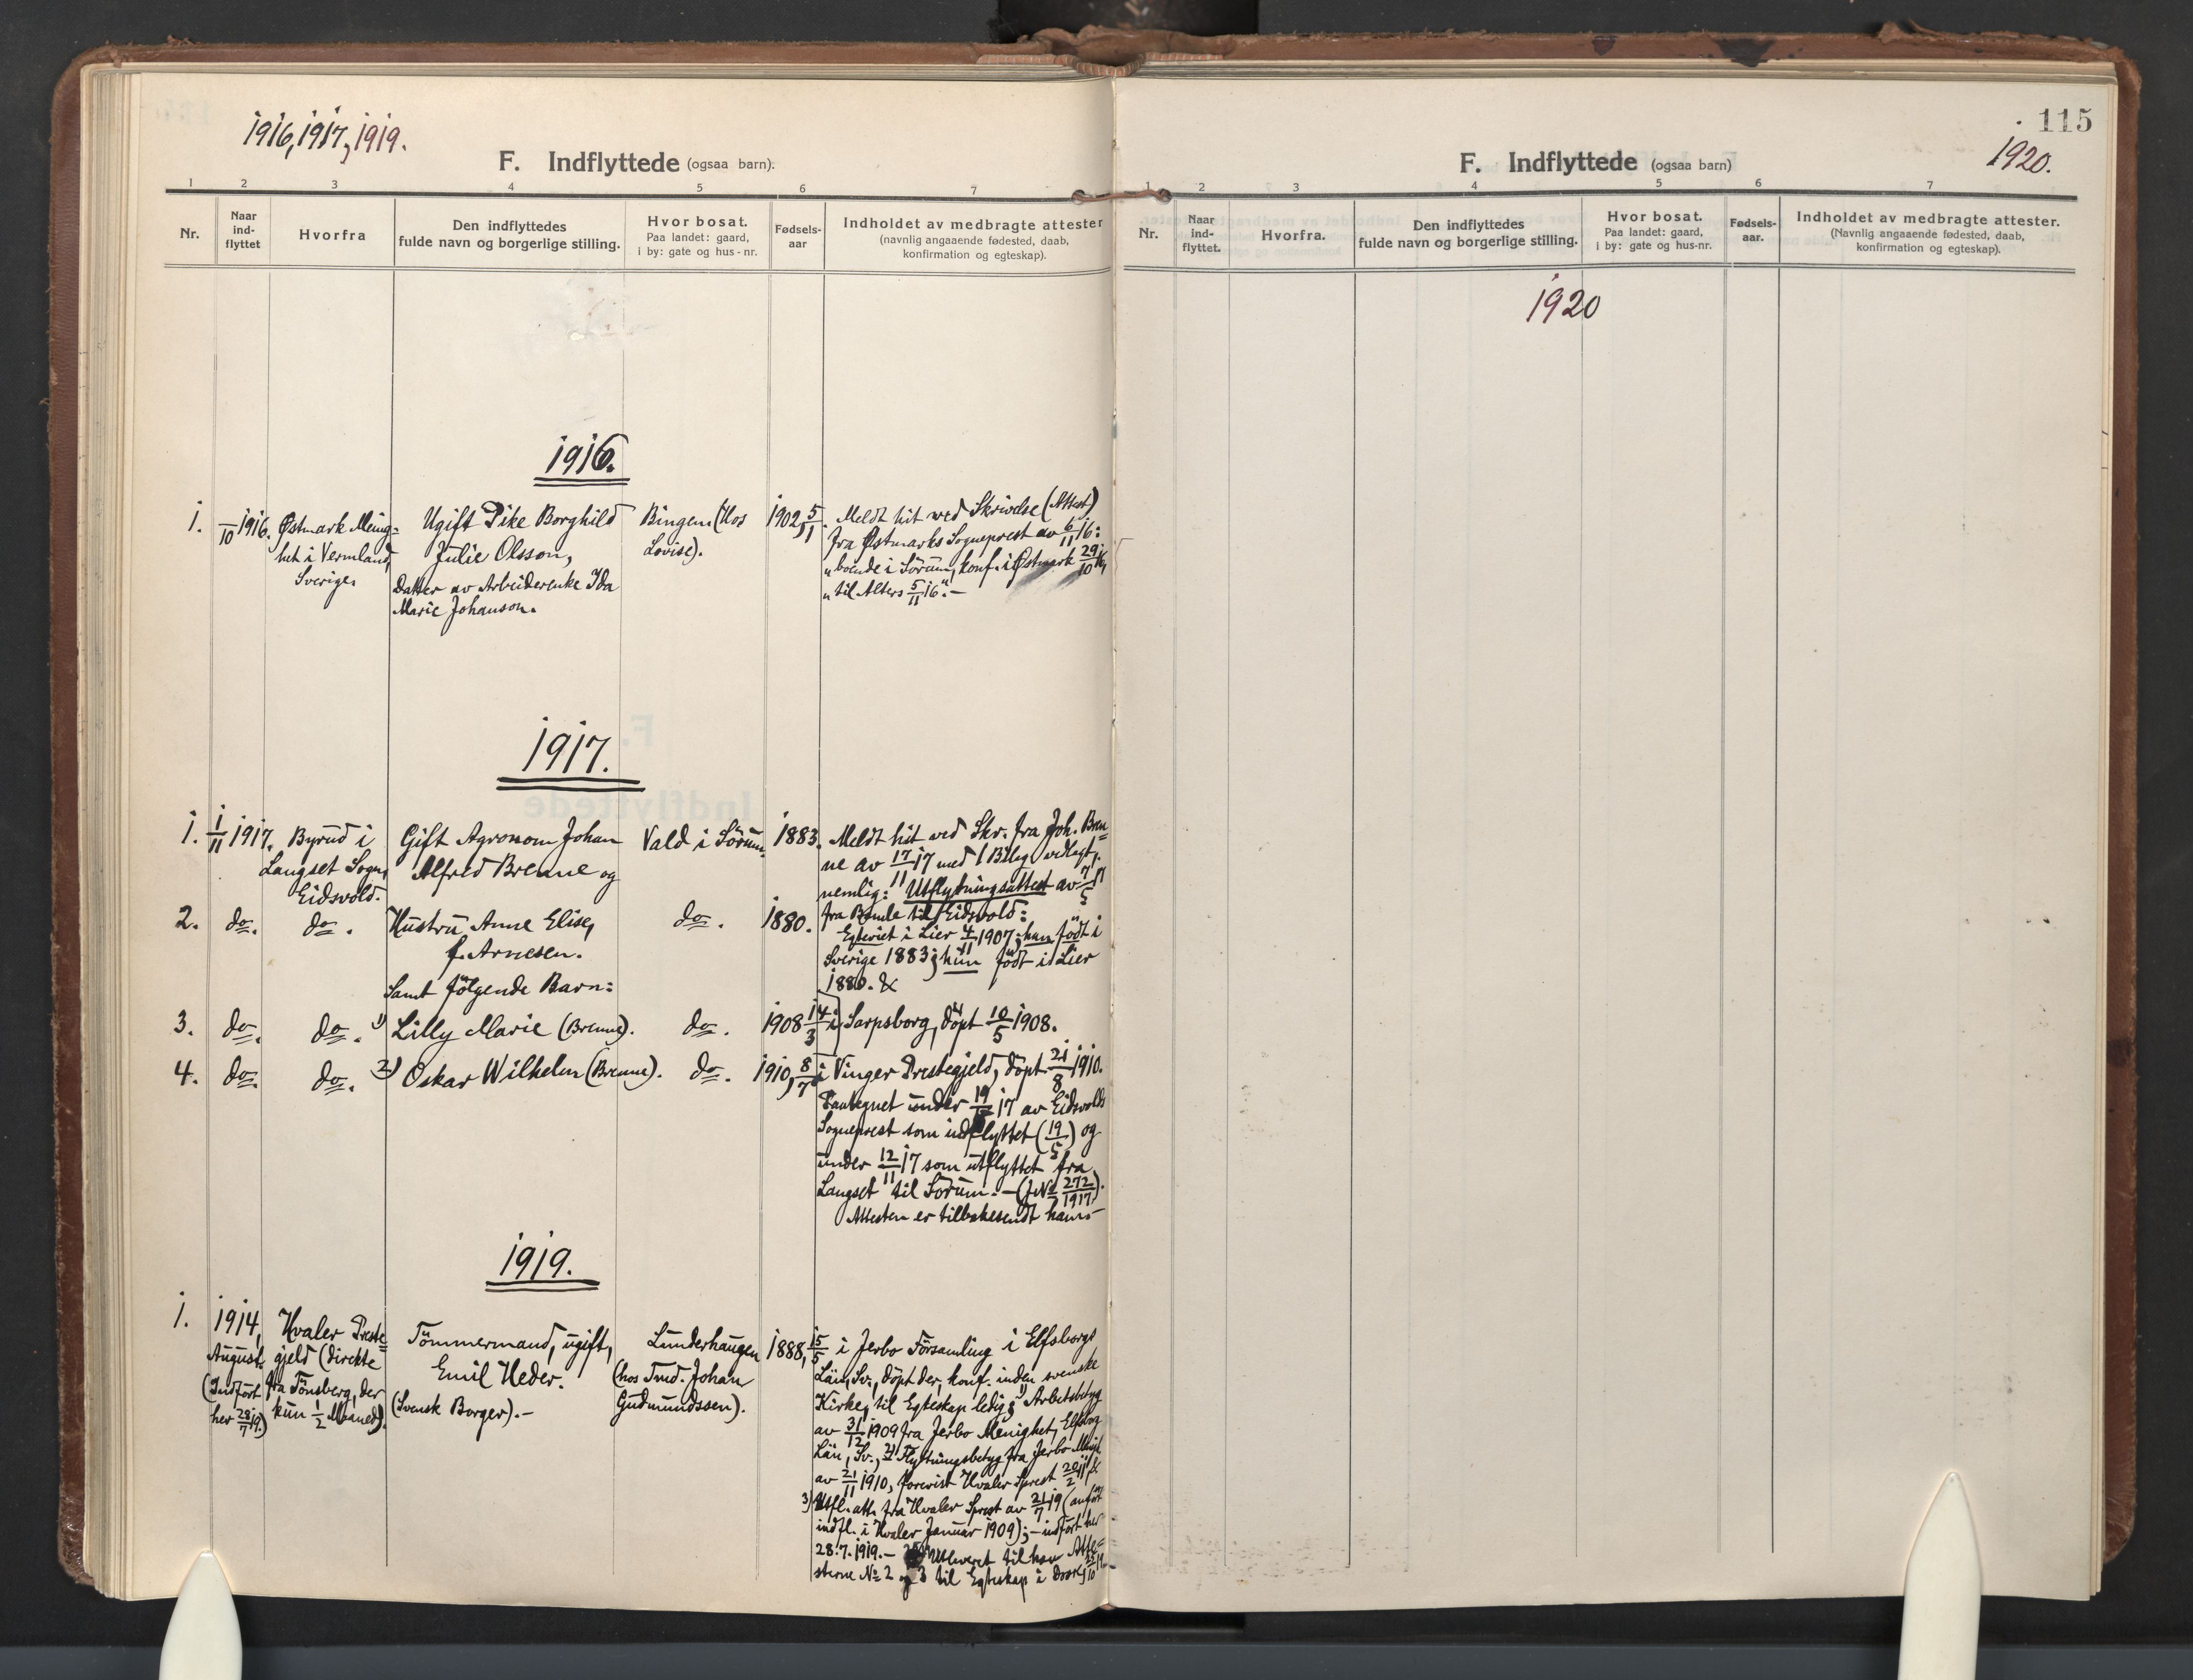 1916, 1917, 1919.
F. Indflyttede (ogsaa barn).
1 2 3 4 5 6 7
Nr.
Naar
ind-
flyttet
Hvorfra
Den indflyttedes
fulde navn og borgerlige stilling.
Hvor bosat.
Paa landet: gaard,
i by: gate og hus-nr.
Fødsels-
aar
Indholdet av medbragte attester
(navnlig angaaende fødested, daab,
konfirmation og egteskap).
1916.
1.
/10 1916.
Østmark Menig-
het i Vermland,
Sverige.
Ugift Pike Borghild
Julie Olsson,
Datter av Arbeiderenke Ida
Marie Johanson.
Bingen (Hos
Lovise).
1902, 5/1.
Meldt hit ved Skrivelse (Attest)
fra Østmarks Sogneprest av 6/11 16:
"boende i Sørum, konf. i Østmark 29/10 16,
"til Alters 5/11 16".-
1917.
1.
1/11 1917.
Byrud i
Langset Sogn,
Eidsvold.
Gift Agronom Johan
Alfred Brenne og
Vald i Sörum.
1883.
Meldt hit ved Skr. fra Joh. Bren=
ne av 17/11 17 med 1 Bilag vedlagt,
nemlig: Utflytningsattest av 7/5 17
2.
do.
do.
Hustru Anne Elise,
f. Arnesen.
do.
1880.
fra til Eidsvold:
Egteviet i Lier 4/11 1907; han födt i
Sverige 1883; hun födt i Lier
1880. &
Samt følgende Barn:
3.
do.
do.
1) Lilly Marie (Brenne).
do.
1908 14/3
i Sarpsborg, döpt 10/5 1908.
4.
do.
do.
2) Oskar Wilhelm (Brenne).
do.
1910, 8/7
i Vinger Prestegjeld, döpt 21/8 1910.
Paategnet under 19/ 17 av Eidsvolds
Sogneprest som indflyttet (19/5) og
under 12/11 17 som utflyttet fra
Langset til Sörum.-(J.No 272/1917).
Attesten er tilbakesendt ham.-
1919.
1.
1914,
August.
(Indført
her 28/7 19.)
Hvaler Preste=
gjeld (direkte
fra Tönsberg, der
kun 1/2 Maaned).
Tömmermand, ugift,
Emil Heder.
(Svensk Borger).-
Lunderhaugen
(hos Tmd. Johan
Gudmundssen).
1888, 15/5
i Jerbo Församling i Elfsborgs
Län, Sv., döpt der, konf. inden svenske
Kirke, til Egteskap ledig; 1) Arbetsbetyg
av 31/12 1909 fra Jerbo Menighet, Elfsborg
Län, Sv., 2) Flyttningsbetyg fra Jerbo Menigh.
av 21/11 1910, forevist Hvaler Sprest 20/2 11 &
3) Utfl. att. fra Hvaler Sprest av 21/7 19 (anfört
indfl. i Hvaler Januar 1909);-indfört her
28.7.1919.- Utleveret til ham Atte=
sterne No 2 og 3 til Egteskap i
115
1920.
F. Indflyttede (ogsaa barn)
1 2 3 4 5 6 7
Nr.
Naar
ind-
flyttet.
Hvorfra.
Den indflyttedes
fulde navn og borgerlige stilling.
Hvor bosat.
Paa landet: gaard,
i by: gate og hus-nr.
Fødsels-
aar.
Indholdet av medbragte attester.
(Navnlig angaaende fødested, daab,
konfirmation og egteskap).
1920